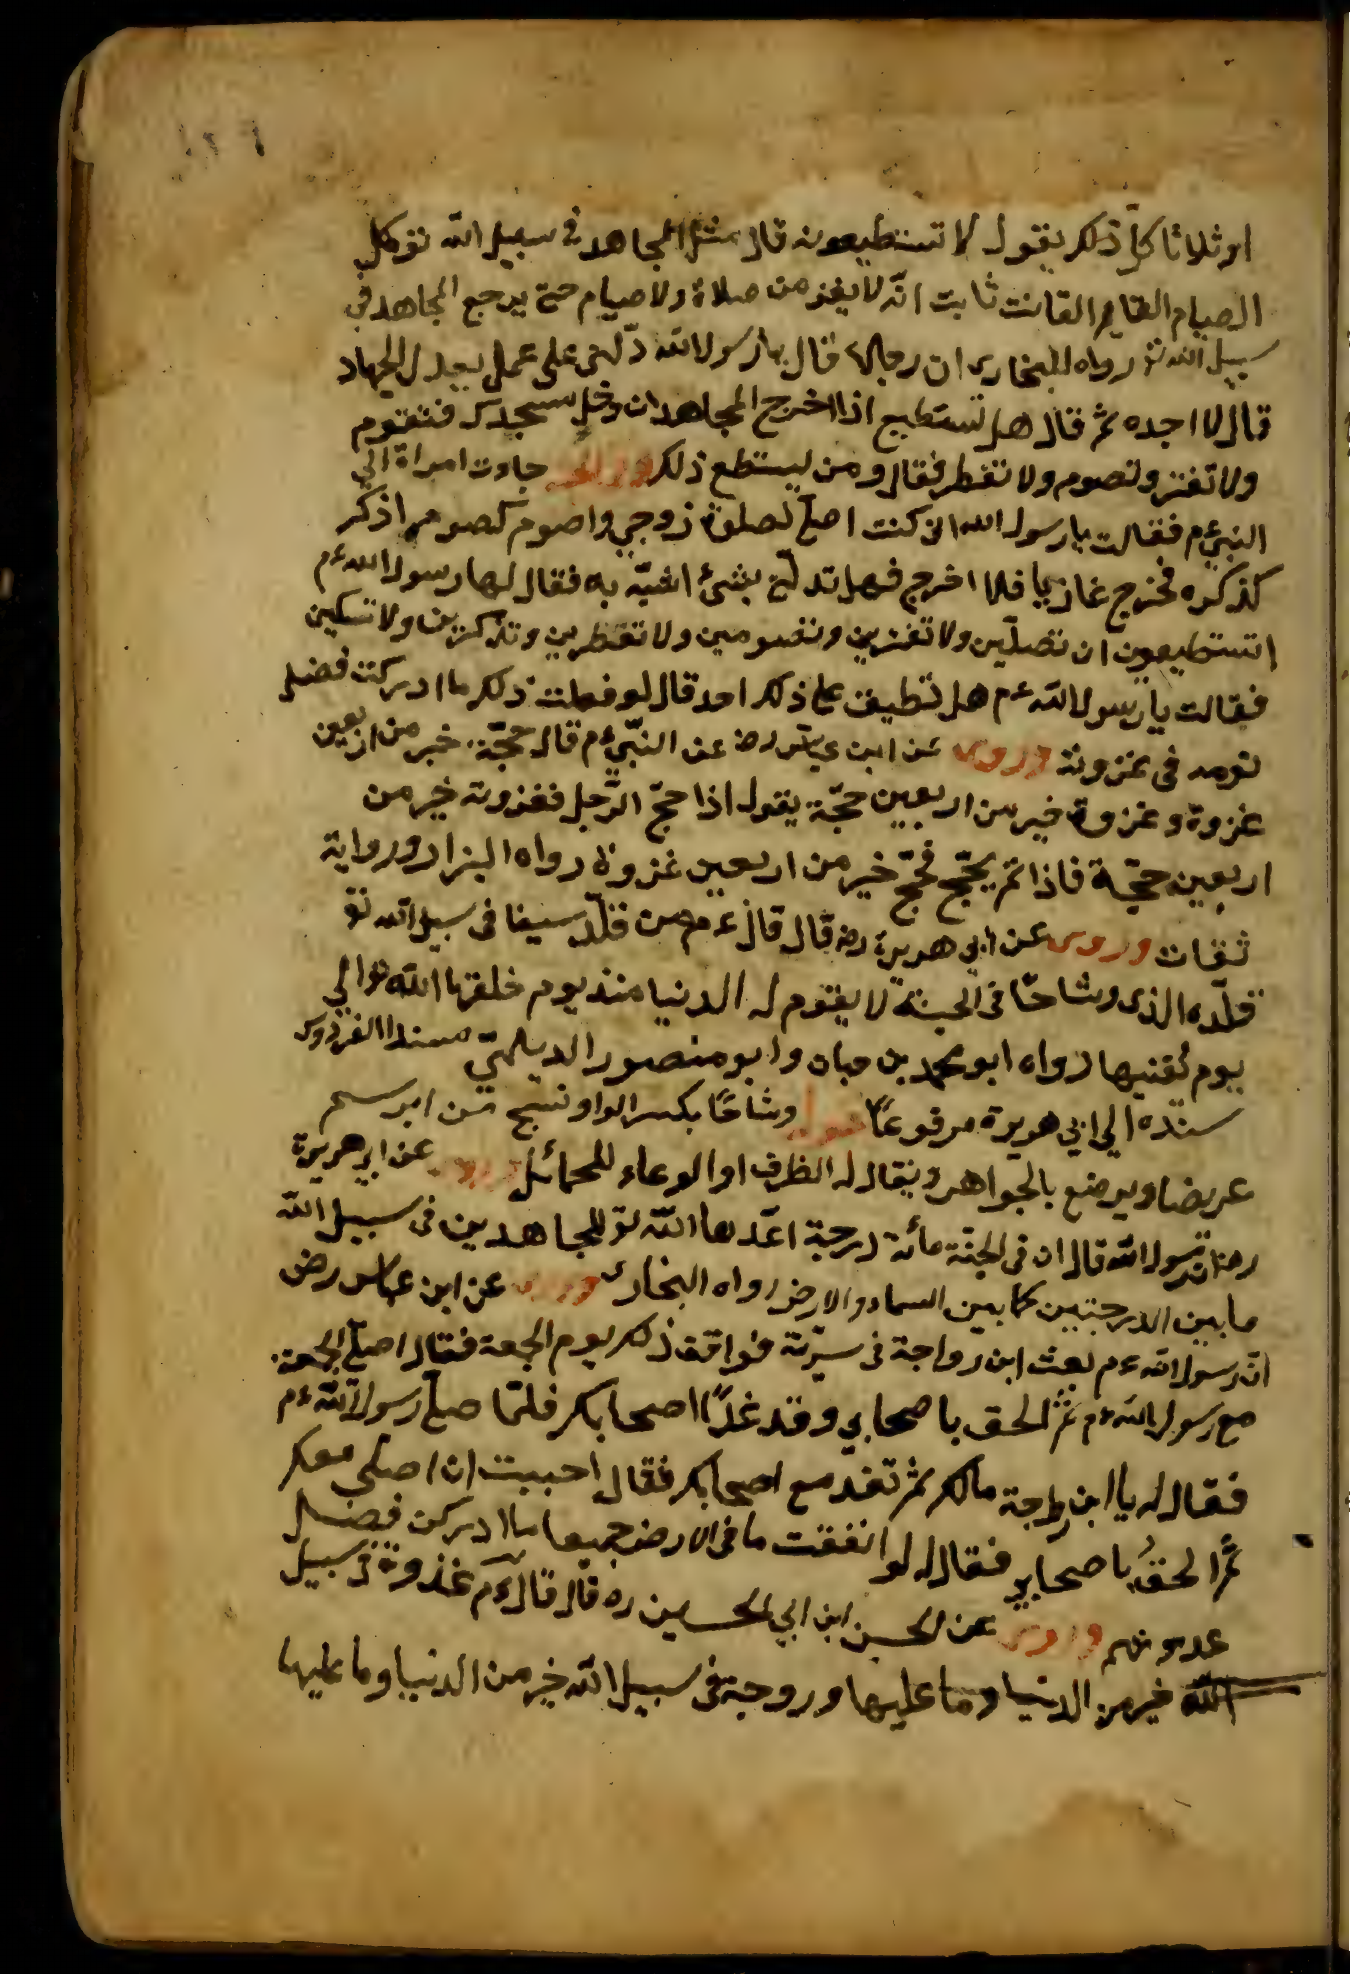 او ثلاثا كلّ ذلك يقول لا تستطيعونه قال مثل المجاهد في سبيل الله تع كمثل
الصيام القايم القانت ثابت انّه لا يفتر من صلاة ولا صيام حتى يرجع المجاهد في
سبيل الله تع رواه البخارى ان رجالا قال يا رسول الله دلّنى على عمل يعدل الجهاد
قال لا اجده ثم قال هل تستطيع اذا خرج المجاهد ان دخل مسجدك فتقوم
ولا تفتر وتصوم ولا تفطر فقال ومن يستطع ذلك جاءت امراة الي
النبيّ ءم فقالت يا رسول الله انى كنت اصلّى لصلوة زوجي واصوم لصومه اذكر
كذكره فخرج غازيا فلا اخرج فهل تدلّنى بشئ اشبّه به فقال لها رسول الله ءم
اتستطيعون ان تصلّين ولا تفترين وتصومين ولا تفطرين وتذكرين ولا تسكين
فقالت يا رسول الله ءم هل تطيق على ذلك احد قال لو فعلت ذلك ما ادركت فضل
نومه فى غزوته وروى عن ابن عبّاس رض عن النبّي ءم قال حجّة خير من اربعين
غزوة وغزوة خير من اربعين حجّة يقول اذا حجّ الرّجل فغزوته خير من
اربعين حجّة فاذا لم يحجّ فحجّ خير من اربعين غزوة رواه البزار ورواية
ثقات وروى عن ابي هريرة رض قال قال ءم من قلّد سيفا فى سبيل الله تع
قلّده الذى وشاحّا فى الجنّة لا يقوم له الدنيا منذ يوم خلقها الله تع الي
يوم تفنيها رواه ابو محمد بن حبان وابو منصور الديلمّي مسند الفردوس
سنده الي ابي هريرة مرفوعًا وشاحًا بكسر الواو نسج من ابريسم
عريضا ويرضع بالجواهر ويقال له الظرف او الوعاء للحمائل عن ابي هريرة
رض ان رسول الله قال ان فى الجنّة مائة درجة اعّدها الله تع للمجاهدين فى سبيل الله
ما بين الدرجتين كما بين السماء والارض رواه البخارى وروى عن ابن عباس رض
انّ رسول الله ءم بعث ابن رواحة فى سريّة فوافق ذلك يوم الجمعة فقال اصلّى الجمعة
مع رسول الله ءم ثمّ الحق باصحابي وقد غدًا اصحابك فلمّا صلّى رسول الله ءم
فقال له يا ابن راحة مالك ثم تغد مع اصحابك فقال احببت ان اصلى معك
ثمّ الحقُ باصحابي فقال له لو انفقت ما فى الارض جميعا ما ادركت فضل
غدوتهم وروى عن الحسن ابن ابي الحسين ره قال قال ءم غذوة فى سبيل
الله خير من الدنيا وما عليها وروحة فى سبيل الله خير من الدنيا وما عليها